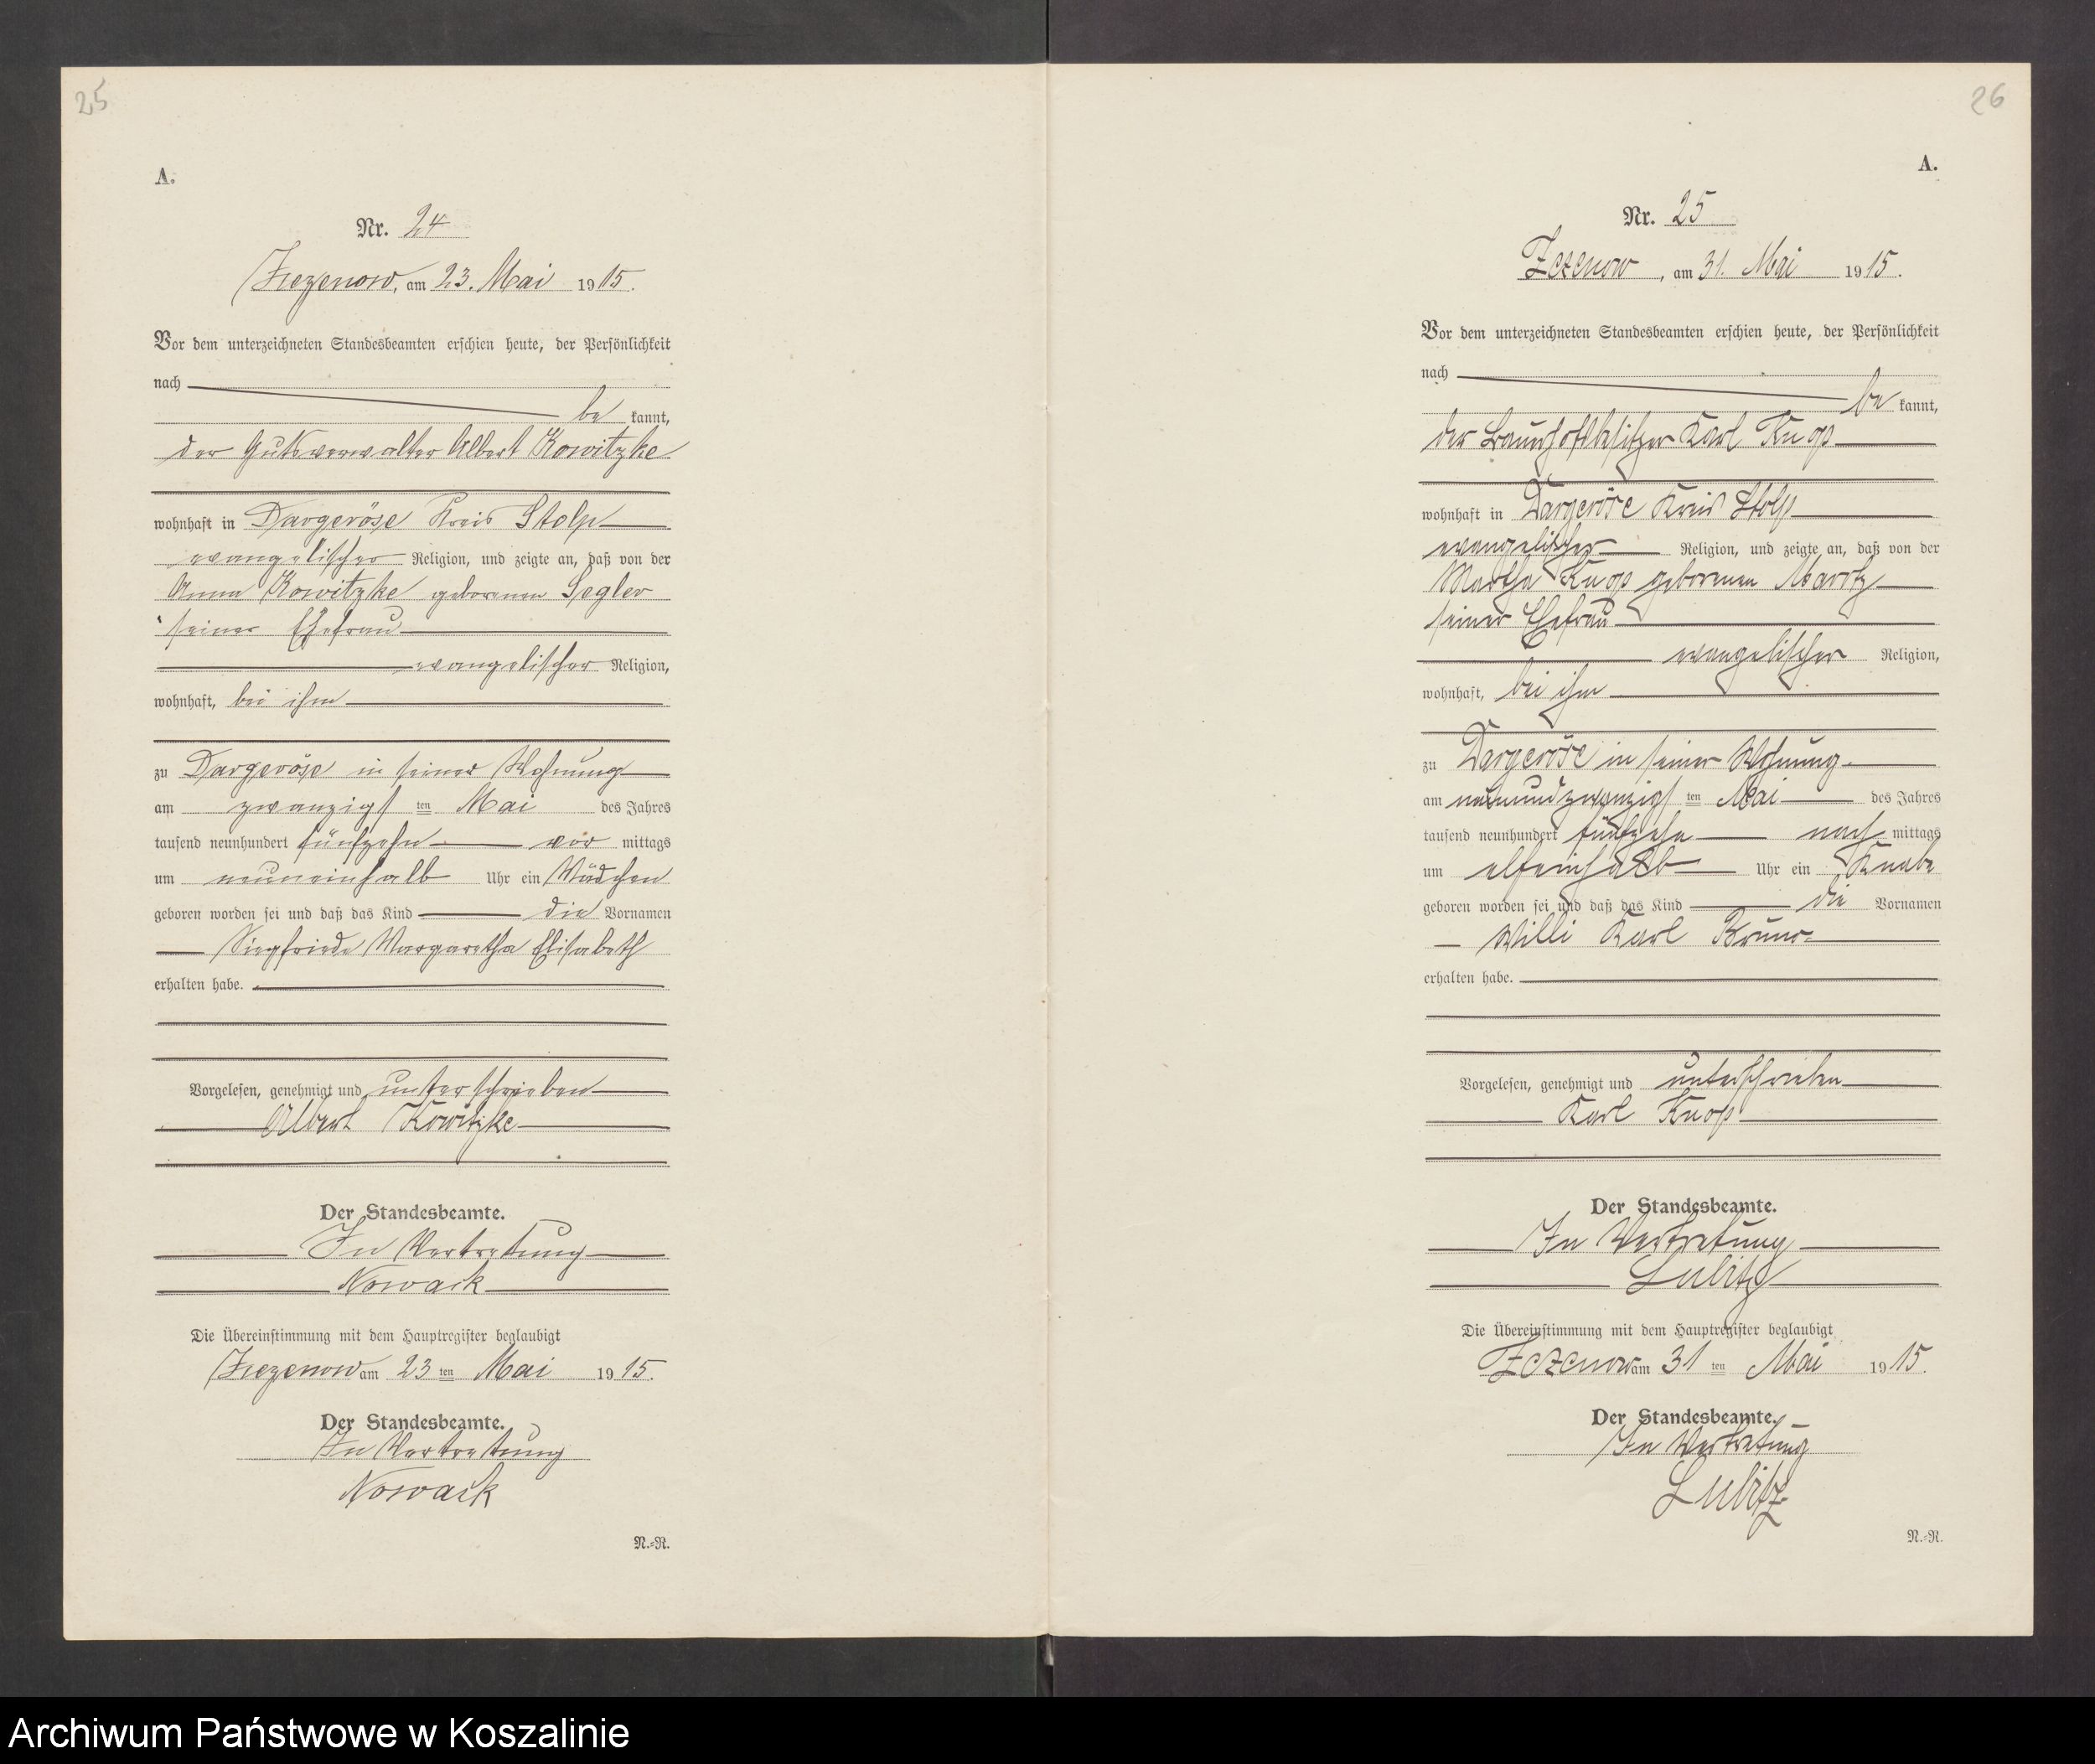 25
A.
Nr. 24
Zezenow, am 23. Mai 1915.
Vor dem unterzeichneten Standesbeamten erschien heute, der Persönlichkeit
nach
be kannt,
der Gutsverwalter Albert Kowitzke
wohnhaft in Dargeröse Kreis Stolp
evangelischer Religion, und zeigte an, daß von der
Anna Kowitzke geborenen Segler
seiner Ehefrau
evangelischer Religion,
wohnhaft, bei ihm
zu Dargeröse in seiner Wohnung
am zwanzigsten Mai des Jahres
tausend neunhundert fünfzehn vor mittags
um neuneinhalb Uhr ein Mädchen
geboren worden sei und daß das Kind die Vornamen
Siegfriede Margaretha Elisabeth
erhalten habe.
Vorgelesen, genehmigt und unterschrieben
Albert Kowitzke
Der Standesbeamte.
In Vertretung
Nowack
Die Übereinstimmung mit dem Hauptregister beglaubigt
Zezenow am 23 ten Mai 1915.
Der Standesbeamte.
In Vertretung
Nowack
N.=R.
26
A.
Nr. 25
Zezenow, am 31. Mai 1915.
Vor dem unterzeichneten Standesbeamten erschien heute, der Persönlichkeit
nach
be kannt,
der Bauerhofsbesitzer Karl Knop
wohnhaft in Dargeröse Kreis Stolp
evangelischer Religion, und zeigte an, daß von der
Martha Knop geborenen
seiner Ehefrau
evangelischer Religion,
wohnhaft, bei ihm
zu Dargeröse in seiner Wohnung
am neunundzwanzigsten Mai des Jahres
tausend neunhundert fünfzehn nach mittags
um elfeinhalb Uhr ein Knabe
geboren worden sei und daß das Kind die Vornamen
Willi Karl Bruno
erhalten habe.
Vorgelesen, genehmigt und unterschrieben
Karl Knop
Der Standesbeamte.
In Vertretung
Lubitz
Die Übereinstimmung mit dem Hauptregister beglaubigt
Zezenow am 31 ten Mai 1915.
Der Standesbeamte.
In Vertretung
Lubitz
N.=R.
Archiwum Państwowe w Koszalinie